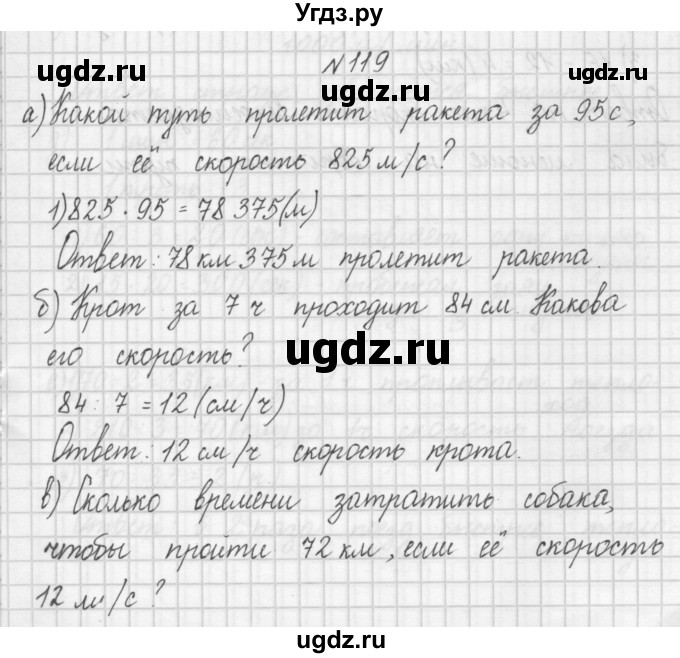 Угдз.ру
ugdz.ru ugdz.ru
№119
ugdz.ru
а) Какой путь пролетит ракета за 95 с,
если её скорость 825 м/с?
1) 825 · 95 = 78 375 (м)
Ответ: 78 км 375 м пролетит ракета.
ugdz.ru ugdz.ru
б) Крот за 7 ч проходит 84 см. Какова
его скорость?
ugdz.ru
84 : 7 = 12 (см/ч)
Ответ: 12 см/ч скорость крота.
ugdz.ru ugdz.ru
в) Сколько времени затратить собака,
чтобы пройти 72 км, если её скорость
12 м/с?
ugdz.ru
ugdz.ru